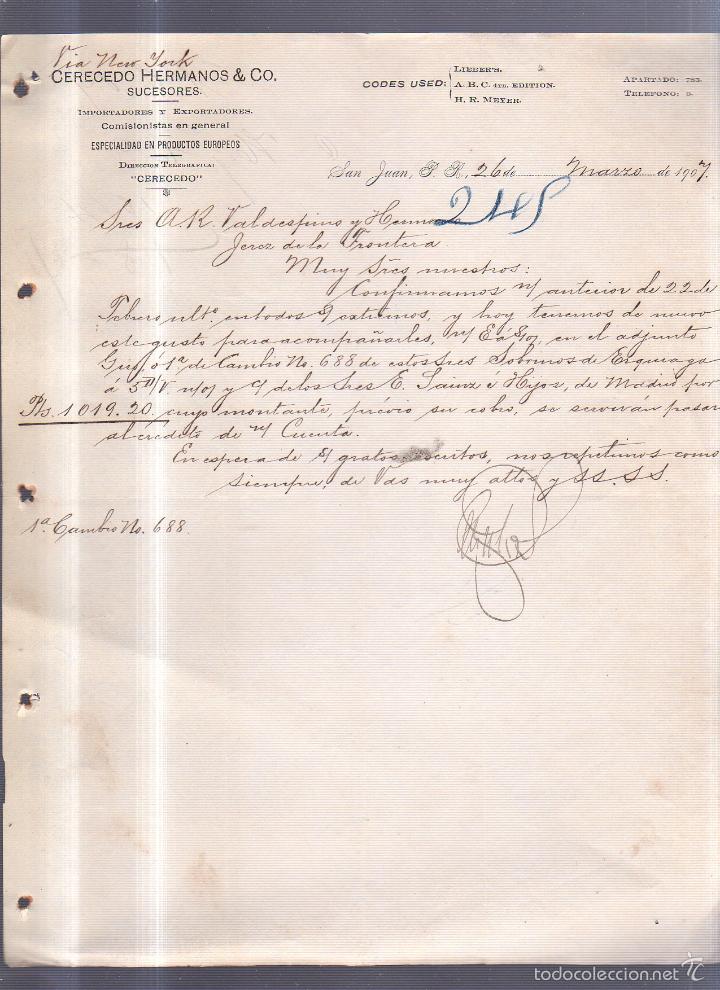 Via New York
CERECEDO HERMANOS & CO.
SUCESORES.
IMPORTADORES Y EXPORTADORES.
Comisionistas en general
ESPECIALIDAD EN PRODUCTOS EUROPEOS
DIRECCION TELEGRAFICA:
"CERECEDO"
CODES USED:
LIEBER'S.
A. B. C. 4TH. EDITION.
H. R. MEYER.
APARTADO: 783.
TELEFONO: 9.
San Juan, P. R., 26 de Marzo de 1907.
Sres A. R. Valdespino y Hermano
Jerez de la Frontera
Muy Sres nuestros:
Confirmamos n/ anterior de 22 de
Febrero ulto. en todos s/ extremos, y hoy tenemos de nuevo
este gusto para acompañarles, en el adjunto
Giro, ó 1ª de Cambio No. 688 de estos Sres Sobrinos de Ezquiaga
á 5 D/V. n/o/ y c/ de los Sres E. Sainz é Hijos, de Madrid por
Pts. 1019.20. cuyo montante, prévio su cobro, se servirán pasar
al crédito de n/ Cuenta.
En espera de s/ gratos escritos, nos repetimos como
siempre, de Vds muy attos y SS. SS.
1ª Cambio No. 688.
todocoleccion.net